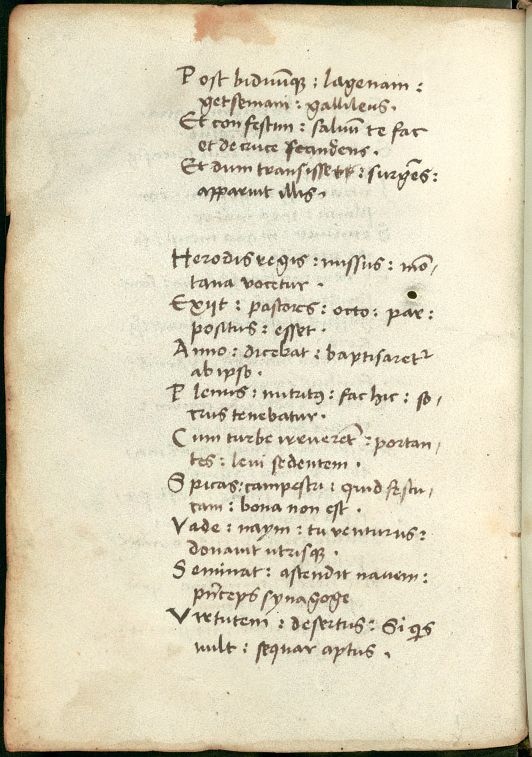 Post biduūq; : lagenam :
getsemani : gallileus .
Et confestim : saluū te fac
et de cruce
Et dum transisset : surgēs :
apparuit illis .
Herodis regis : missus : mō,
tana vocetur .
Exijt : pastores : octo : par :
positus : esset .
Anno : dicebat : baptisaret
ab ipso .
Plenus : : fac hic : so,
crus tenebatur .
Cum turbe irrueret : portan,
tes : leui sedentem .
Spicas : campestri : quid festu,
cam : bona non est .
Vade : naym : tu venturus :
donauit utrisq; .
Seminat : astendit nauem :
pnceps synagoge
Virtutem : desertus : Si qis
uult : sequar aptus .